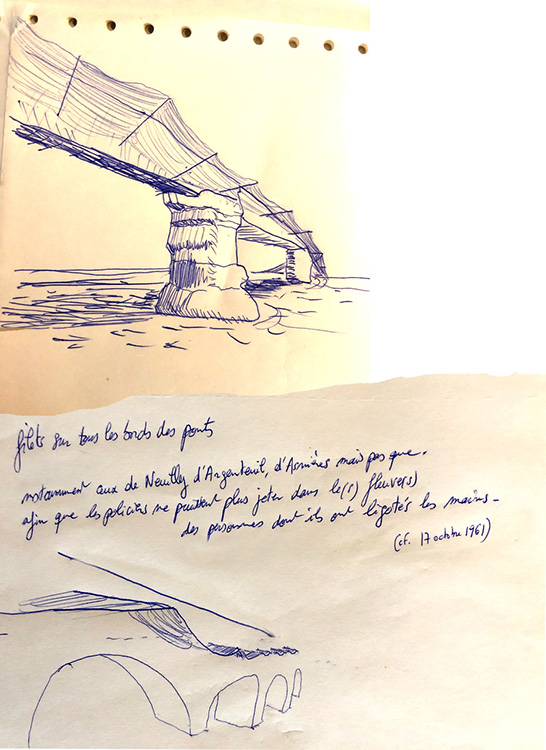 filets sur tous les bords des ponts
notamment ceux de Neuilly d'Argenteuil, d'Asnières mais pas que.
afin que les policiers ne puissent plus jeter dans le(s) fleuve(s)
des personnes dont ils ont ligotés les mains -
(cf. 17 octobre 1961)